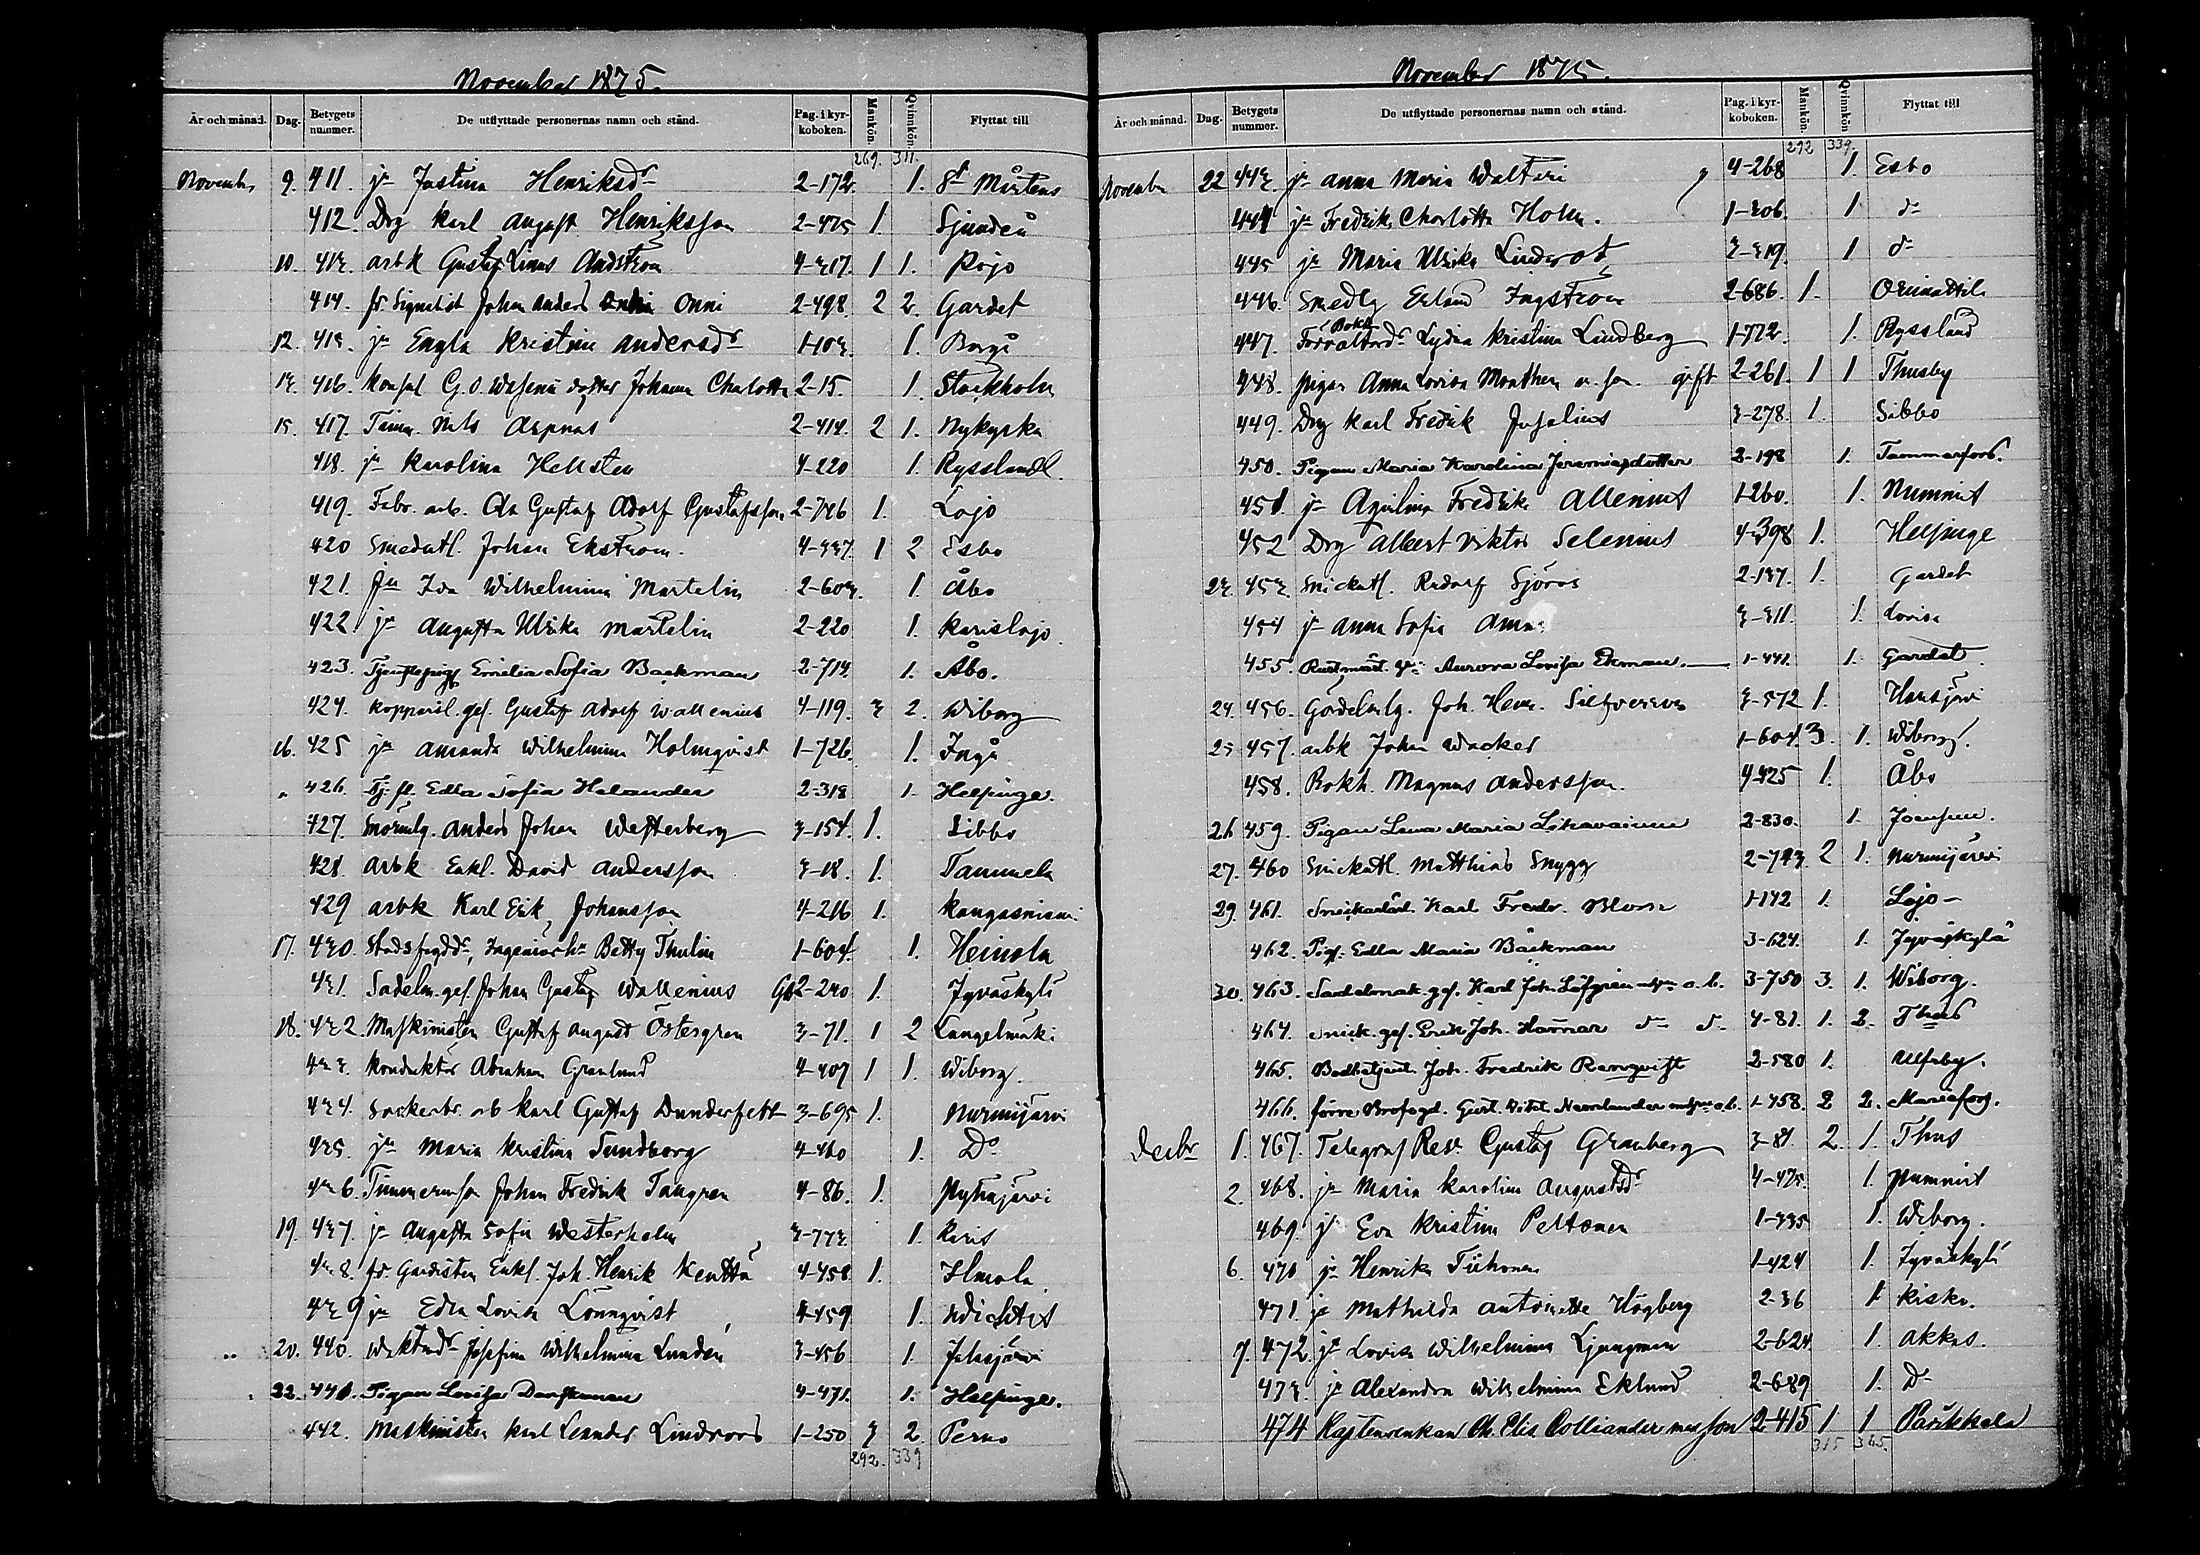 November 1875.
År och månad. Dag. Betygets nummer. De utflyttade personernas namn och stånd. Pag. i kyrkoboken. Mankön. Qvinnkön. Flyttat till
269. 311.
Novemb. 9. 411. jn Justina Henriksdr 2-172. 1. St Mårtens
412. Drg Karl August Henriksson 2-475 1. Sjundeå
10. 413. arbk Gustaf Linus Andström 4-317. 1 1. Pojo
414. fr. Signalist Johan Anders Onni 2-498. 2 2. Gardet
12. 415. jn Engla Kristina Andersdr 1-103. 1. Borgå
13. 416. Konsul G.O. Wasenii dotter Johanna Charlotta 2-15. 1. Stockholm
15. 417. Timm. Nils Aspnäs 2-414. 2 1. Nykyrka
418. jn Karolina Hellsten 4-220 1. Ryssland.
419. Fabr. arb. Gustaf Adolf Gustafsson 2-746 1. Lojo
420 Smedatl. Johan Ekström. 4-337. 1 2 Esbo
421. jn Ida Wilhelmina Martelin 2-603. 1. Åbo
422 jn Augusta Ulrika Martelin 2-220 1. Karislojo
423. Emelia Sofia Backman 2-714. 1. Åbo.
424. Kopparsl. ges. Gustaf Adolf Wallenius 4-119. 3 2. Wiborg
16. 425 jn Amanda Wilhelmina Holmqvist 1-726. 1. Ingå
" 426. Tj. fl. Edla Sofia Helander 2-318 1. Helsinge.
427. Anders Johan Westerberg 3-154. 1. Sibbo
428. arbk Enkl. David Andersson 3-18. 1. Tammela
429 arbk Karl Erik Johansson 4-216 1. Kangasniemi
17. 430. Betty Thulin 1-604. 1. Heinola
431. Sadelm. ges. Johan Gustaf Wallenius 2-240 1. Jyväskylä
18. 432. Maskinisten Gustaf August Östergren 3-71. 1 2 Längelmäki
433. Konduktör Abraham Granlund 4-407 1 1. Wiborg.
434. Sockerbr. arb Karl Gustaf Dunderfelt 3-695 1. Nurmijärvi
435. jn Maria Kristina Sundberg 4-460 1. Do
436. Timmerm. Johan Fredrik Tangren 4-86. 1. Pyhäjärvi
19. 437. jn Augusta Sofia Westerholm 3-773. 1. Karis
438. fr. Gardisten Enkl. Joh. Henrik Kenttä 4-458 1. Ilmola
439 jn Edla Lovisa Lönnqvist 4-459 1. Wichtis
20. 440. Josefina Wilhelmina Lundén 3-456 1. Jalasjärvi
22. 441. Pigan Lovisa Danskman 4-471. 1. Helsinge.
442. Maskinisten Karl Leander Lindroos 1-250 3 2. Perno
292. 339
November 1875.
År och månad. Dag. Betygets nummer. De utflyttade personernas namn och stånd. Pag. i kyrkoboken. Mankön. Qvinnkön Flyttat till
292 339.
Novemb 22 443. jn Anna Maria Walteri 4-268 1. Esbo
444 jn Fredrika Charlotta Holm. 1-306. 1 do
445 jn Maria Ulrika Lindroos 3-319. 1 do
446. Smedlg Erland Ingström 2-686. 1. Orimattila
447. Lydia Kristina Lindberg 1-772. 1. Ryssland
448. pigan Anna Lovisa Monthen u. son. gift 2-261. 1 1 Thusby
449. Drg Karl Fredrik 3-278. 1. Sibbo
450. Pigan Maria Karolina Jeremiasdotter 2-198 1. Tammerfors.
451. jn Aqvilina Fredrika Allenius 1-260. 1. Nummis
452 Drg Albert Viktor Selenius 4-398 1. Helsinge
23. 453. Snickatl. Rudolf Sjöros 2-137. 1. Gardet
454 jn Anna Sofia 3-311. 1. Lovisa
455. Aurora Lovisa Ekman. 1-441. 1. Gardet
24. 456. Joh. Henr. 3-572 1. Hausjärvi
25 457. arbk Johan Wacker 1-604. 3. 1. Wiborg.
458. Bokh. Magnus Andersson. 4-425 1. Åbo
26 459. Pigan Lena Maria 2-830. 1. Joensuu.
27. 460 Snickatl. Matthias Snygg 2-743. 2 1. Nurmijärvi
29. 461. Karl Fredr. Blom 1-142 1. Lojo
462. Pig. Edla Maria Bäckman 3-624. 1. Jyväskylä
30. 463. Sadelmak. ges. Karl Joh. Löfgren 3-750 3. 1. Wiborg.
464. Snick. ges. Erik Joh. Hammar do do 4-81. 1. 2. Thus
465. Joh. Fredrik Renqvist 2-580 1. Ulfsby.
466. förre 1-458. 2 2. Mariefors.
Decbr 1. 467. Telegraf Rev. Gustaf Granberg 3-81. 2. 1. Thus
2. 468. jn Maria Karolina Augustsdr 4-475. 1. Nummis
469. jn Eva Kristina Peltonen 1-335 1. Wiborg.
6. 470 jn Henrika Tiihonen 1-424 1. Jyväskylä
471. jn Mathilda Antoinette Högberg 2-36 1 Kisko.
7. 472. jn Lovisa Wilhelmina Ljungman 2-624 1. Akkas.
473. jn Alexandra Wilhelmina Eklund 2-689 1. Do
474 Kaptensenkan Ch. Elis Colliander med son 2-415 1 1 Parikkala
315 365.